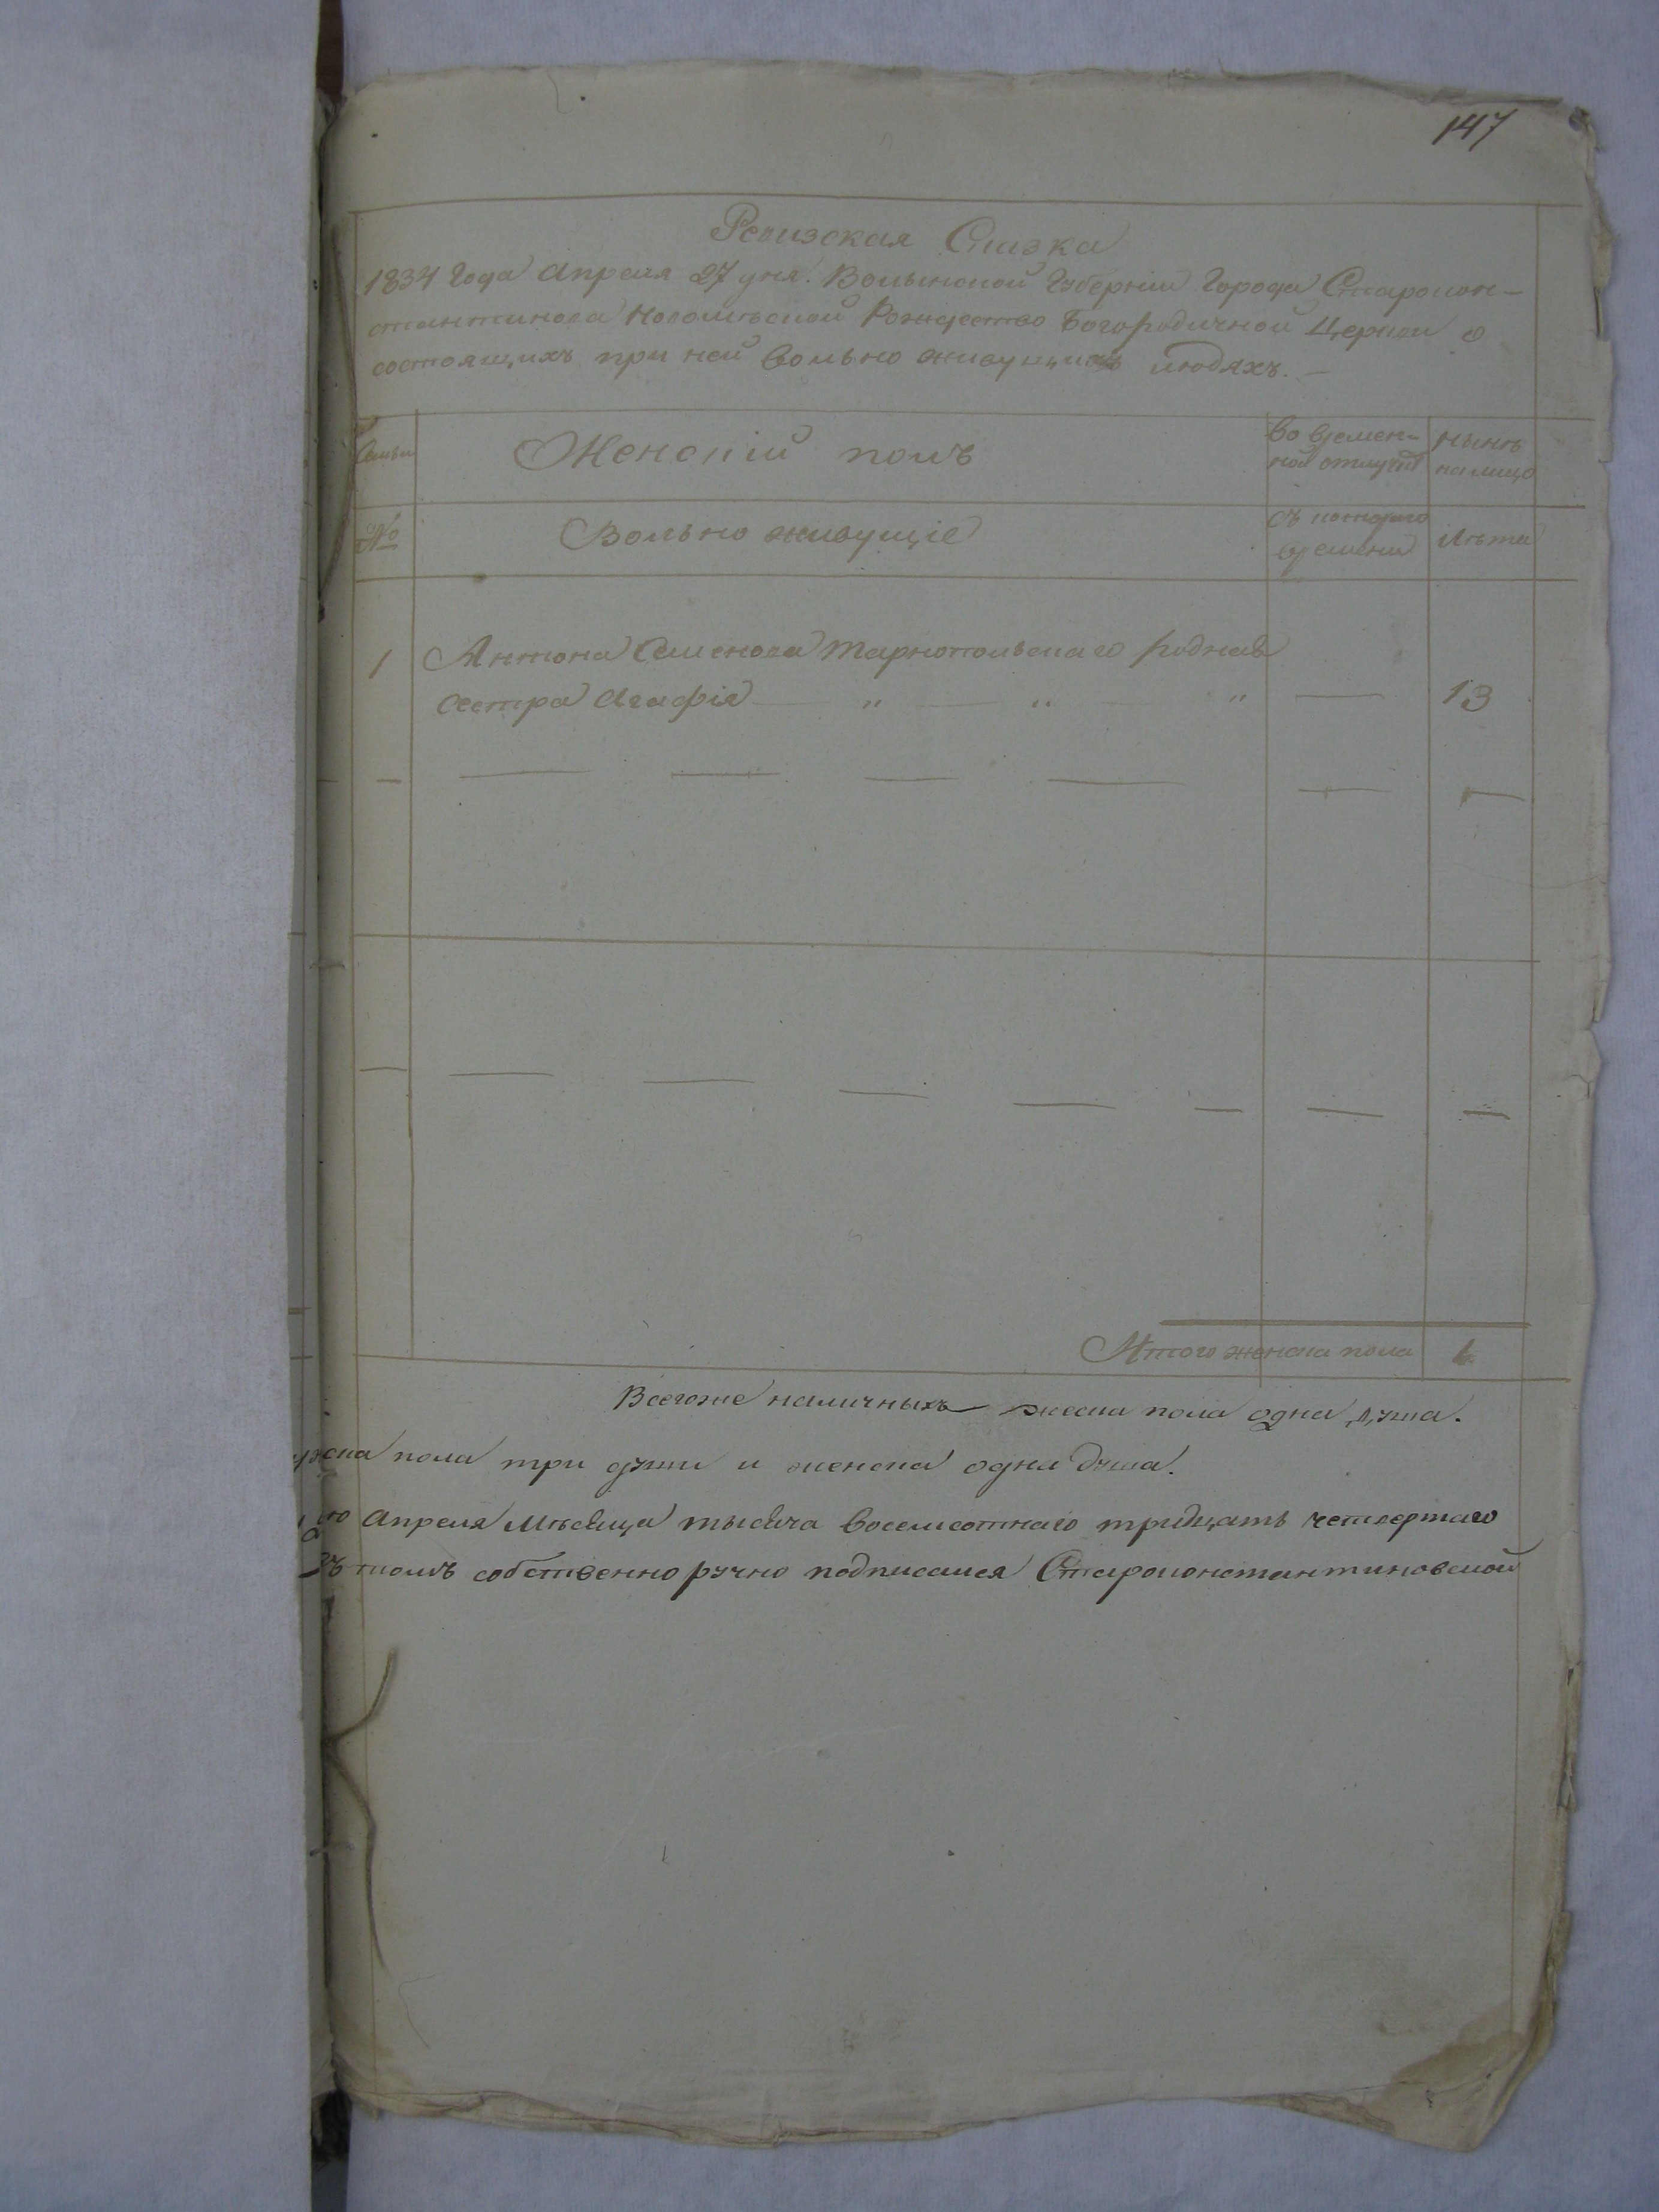 147
Ревизская Сказка
1834 Года Апреля 27 дня. Волынской Губерніи Города Старокон-
стантинова Рождество Богородичной Церкви о
состоящихъ при ней вольно живущихъ людяхъ. —
Семьи
Женскій полъ
Во времен-
ной отлучкѣ
Нынѣ
налицо
№
Вольно живущіе
Съ котораго
времени
Лѣта
1 Антона Семенова Тарнопольскаго родная
сестра Агафія — " — " " — 13
Итого женска пола 1.
Всегоже наличныхъ женска пола одна душа.
пола три души и женска одна душа.
Апреля Мѣсяца тысяча восемсотнаго тридцать четвертаго
Въ томъ собственноручно подписался Староконстантиновской